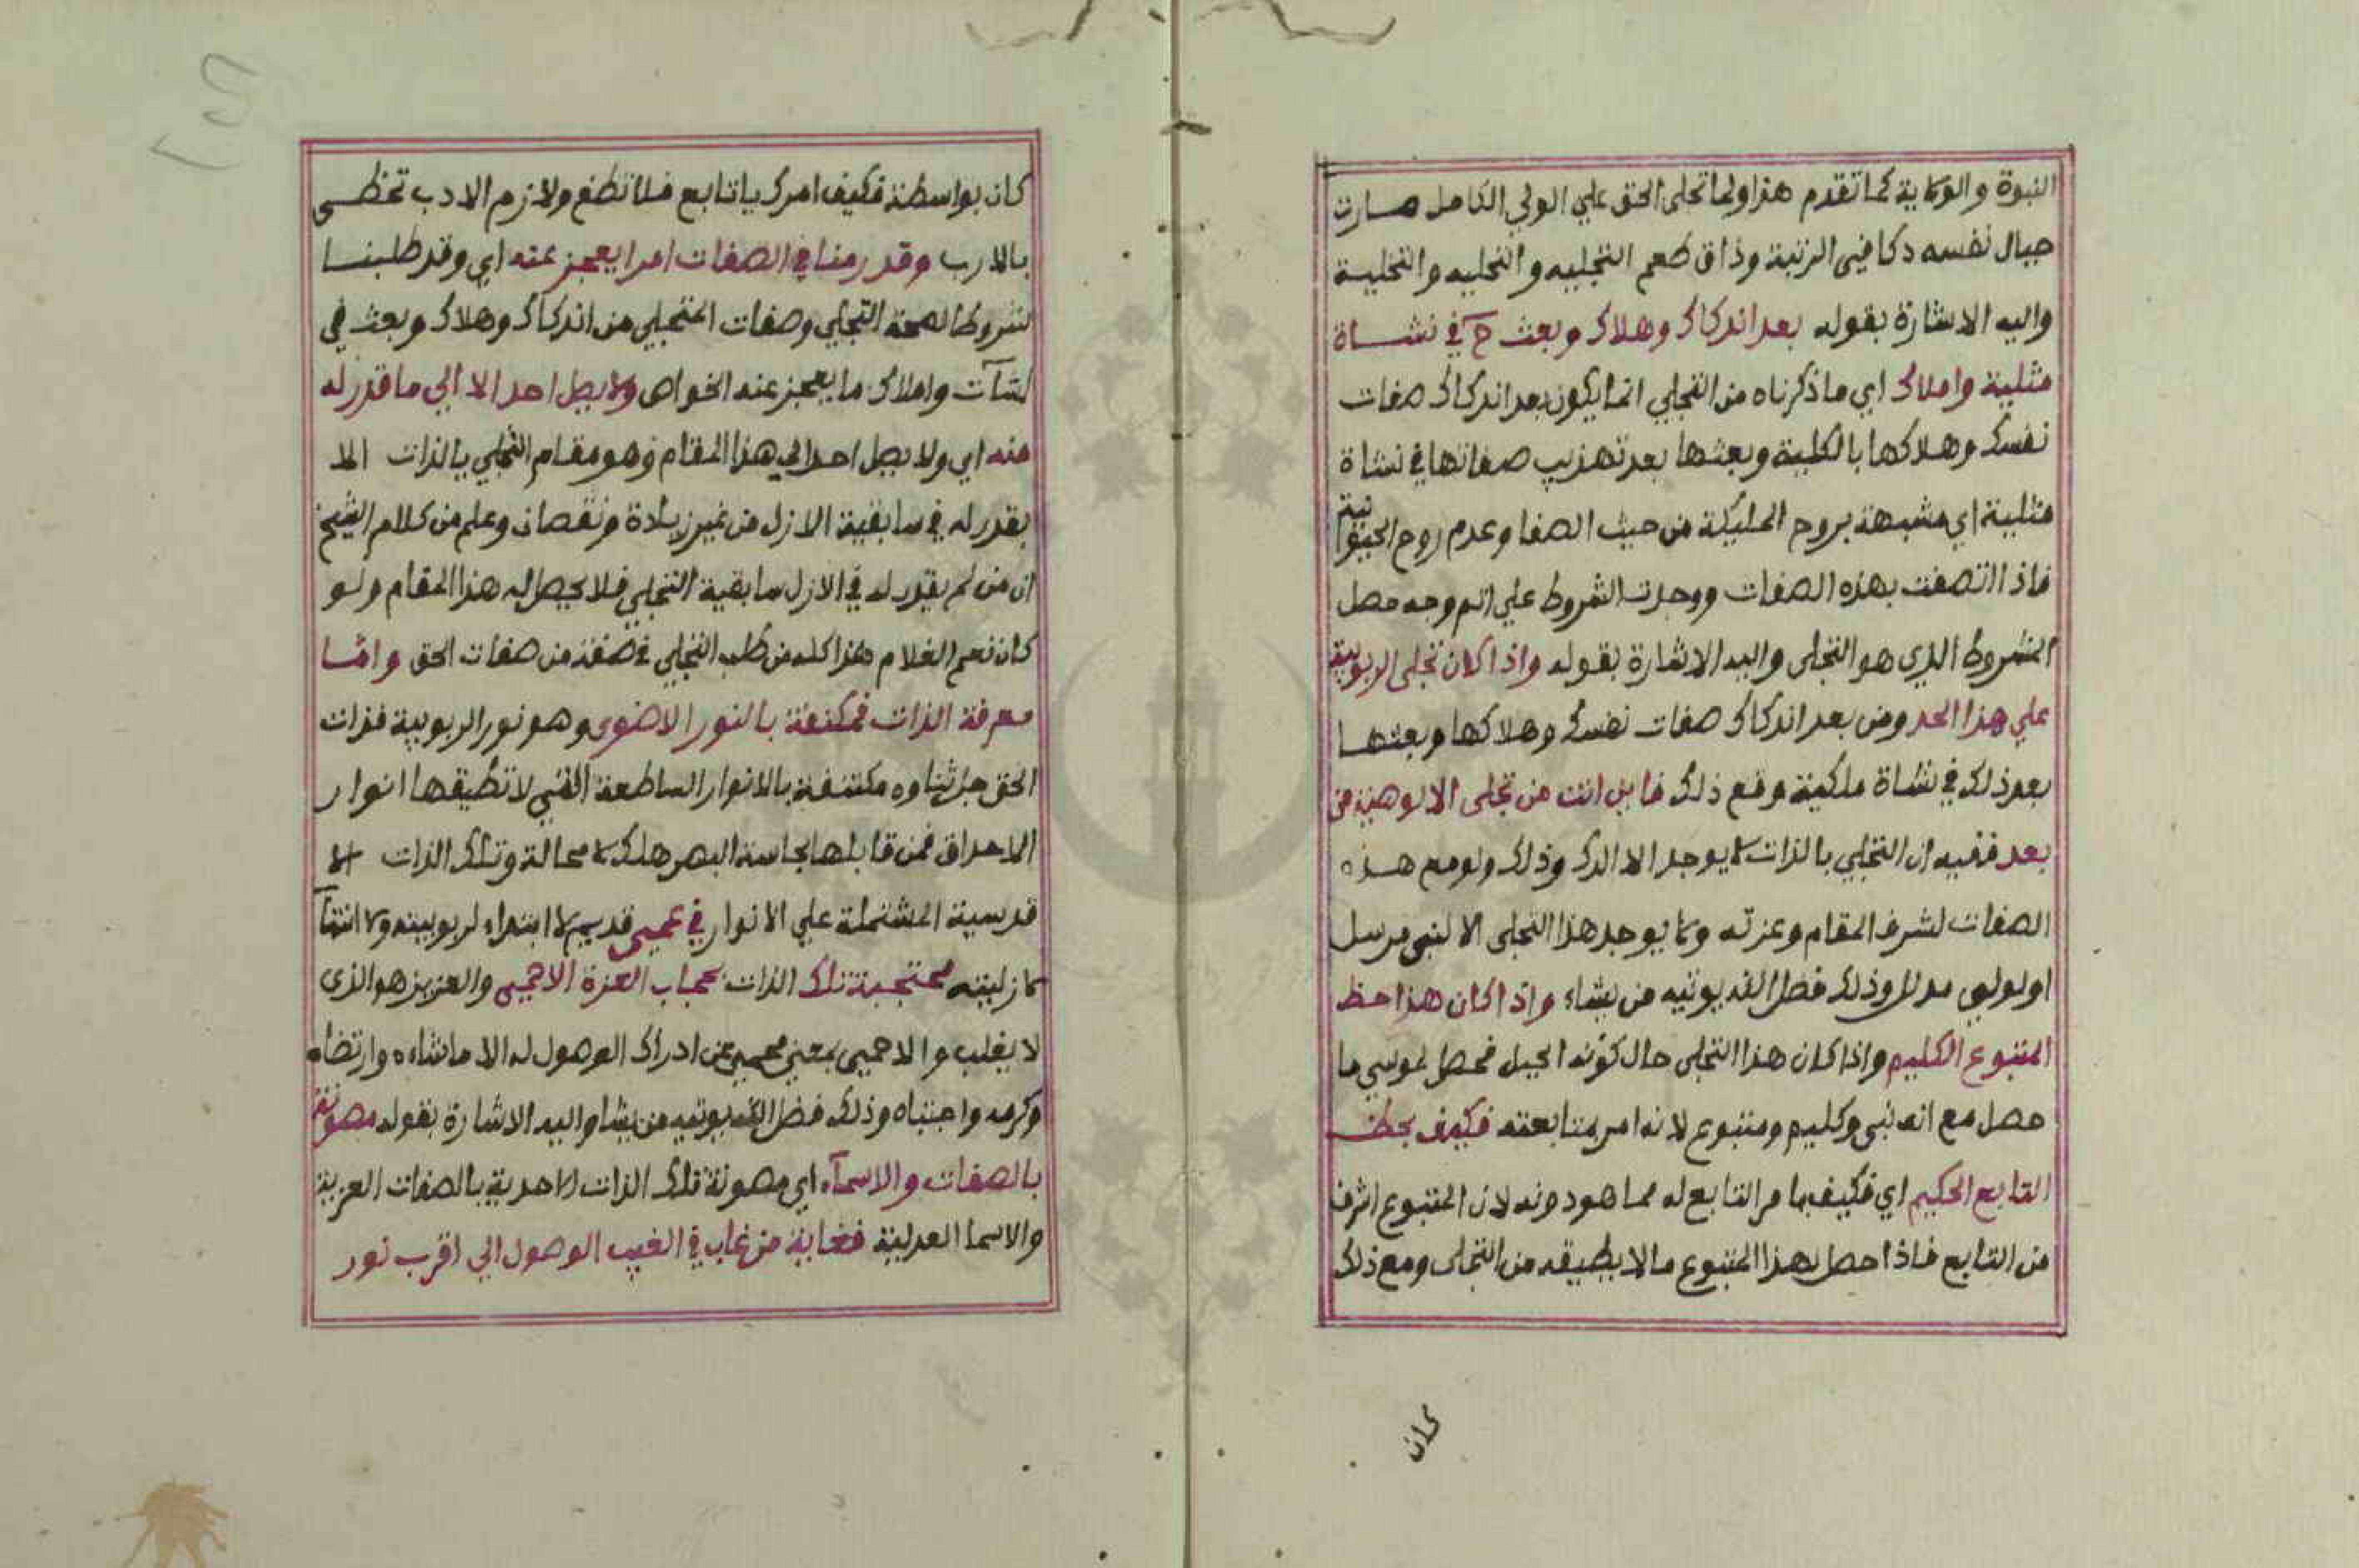 النبوة والولاية كما تقدم هذا ولما تجلى الحق علي الولي الكامل صارت
جبال نفسه دكا فيى الرتبة وذاق طعم التجلييه والتخليه والتحلية
واليه الاشارة بقوله بعد اندكاك وهلاك وبعث ح في نشاة
مثلية واملاك اي ما ذكرناه من التجلي انما يكون بعد اندكاك صفات
نفسك وهلاكها بالكلية وبعثها بعد تهذيب صفاتها في نشاة
مثلية اي مشبهة بروح المليكة من حيث الصفا وعدم روح الحيوانية
فاذا اتصفت بهذه الصفات ووجدت الشروط علي اتم وجه حصل
المشروط الذي هو التجلى واليه الاشارة بقوله واذا كان تجلى الربوبية
علي هذا الحد ومن بعد اندكاك صفات نفسك وهلاكها وبعثها
بعد ذلك في نشاة ملكية ومع ذلك فاين انت من تجلى الالوهية من
بعد ففيه ان التجلي بالذات لا يوجد الا الدك وذلك ولو مع هذه
الصفات لشرف المقام وعزته ولا يوجد هذا التجلى الا لنبى مرسل
او لولي مدلل وذلك فضل الله يوتيه من يشاء واذا كان هذا حظ
المتبوع الكليم واذا كان هذا التجلى حال كونه الجبل فحصل لموسي ما
حصل مع انه نبى وكليم ومتبوع لانه امر بمتابعته فكيف بحظ
التابع الحكيم اي فكيف بما مر التابع له مما هو دونه لان المتبوع اشرف
من التابع فاذا حصل لهذا المتبوع ما لا يطيقه من التجلى ومع ذلك
كان
كان بواسطة فكيف امرك يا تابع فلا تطغ ولازم الادب تحظى
بالارب وقد رمنا في الصفات امرا يعجز عنه اي وقد طلبنا
شروطا لصحة التجلي وصفات المتجلي من اندكاك وهلاك وبعث في
نشآت واملاك ما يعجز عنه الخواص ولا يصل احد الا الي ما قدر له
منه اي ولا يصل احد الي هذا المقام وهو مقام التجلي بالذات الا
بقدر له في سابقية الازل من غير زيادة ونقصان وعلم من كلام الشيخ
ان من لم يقدر له في الازل سابقية التجلي فلا يحصل له هذا المقام ولو
كان نعم الغلام هذا كله من طلب التجلي في صفة من صفات الحق واما
معرفة الذات فمكتنفة بالنور الاضوى وهو نور الربوبية فذات
الحق جل ثناوه مكتنفة بالانوار الساطعة التي لا تطيقها انوار
الاحداق فمن قابلها بحاسة البصر هلك لا محالة وتلك الذات الا
قدسية المشتملة علي الانوار في عمى قديم لا ابتداء لربوبيته ولا انتهآ
لازليته محتجبة تلك الذات بحجاب العزة الاحمى والعزيز هو الذى
لا يغلب والاحمى بمعني محمي عن ادراك الوصول له الا ما شاءه وارتضاه
وكرمه واجتباه وذلك فضل الله يوتيه من يشا واليه الاشارة بقوله مصونة
بالصفات والاسمآء اي مصونة تلك الذات الاحدية بالصفات العزيزية
والاسما العدلية فغاية من غاب في الغيب الوصول الي اقرب نور